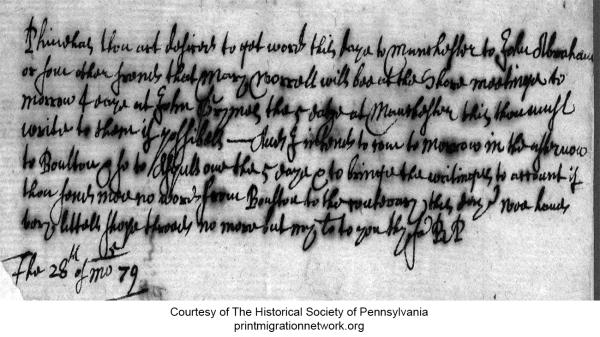 Phinehas thou art desired to get word this daye to Manchester to John Abraham
or som other frends that Mary Worrell will bee at the Shore meetinge to
morrow 4 daye at John the 5 daye at Manchester this thou must
write to them if possible — And I intends to com to morrow in the afternow
to Boulton & so to one the 5 daye & to bringe the writinges to account if
thou sends mee no words from Boulton to the contrary this day wee haue
very littell hope theres no more but my Lo to you thy fr RP
The 28th of 5 mo 79
Courtesy of The Historical Society of Pennsylvania
printmigrationnetwork.org